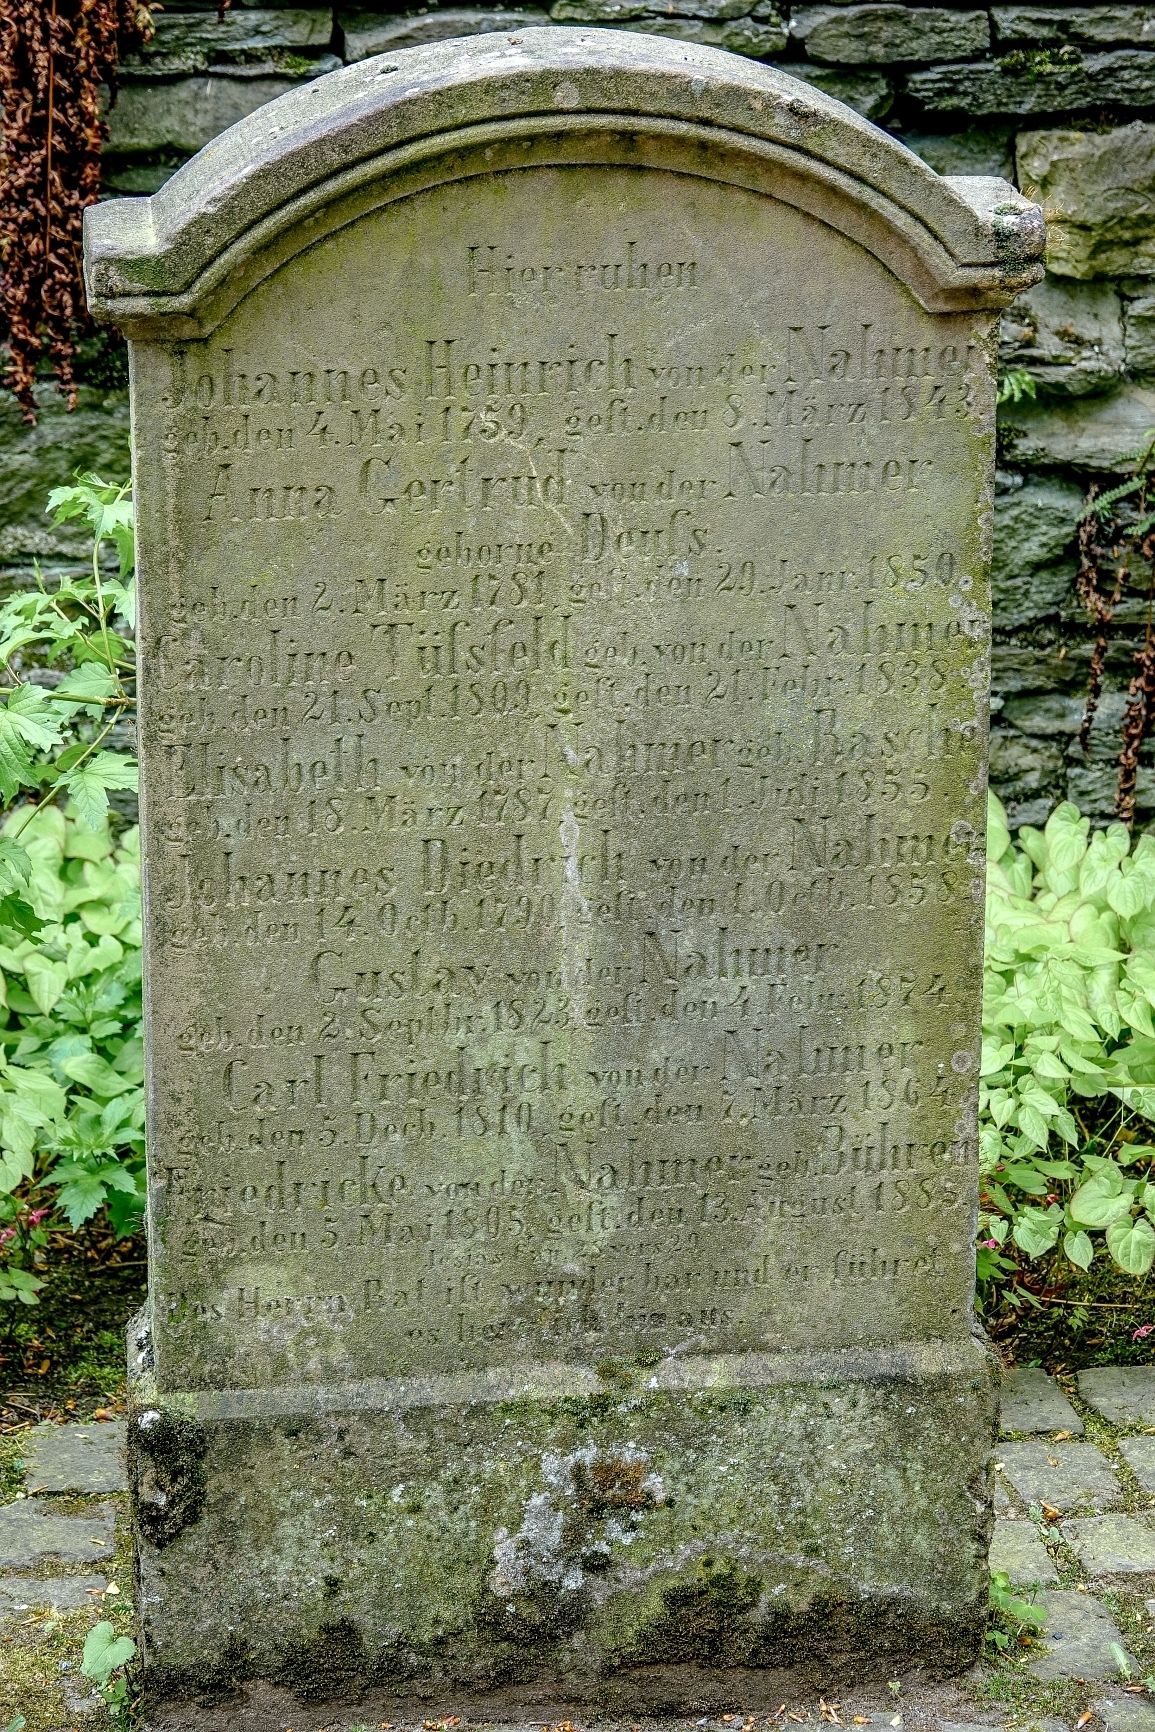 Hier ruhen
Johannes Heinrich von der Nahmer
geb. den 4. Mai 1759, gest. den 8. März 1843.
Anna Gertrud von der Nahmer
geborne Deuſs.
geb. den 2. März 1781. geſt. den 29. Janr. 1850.
Caroline Tüſsfeld geb. von der Nahmer
geb. den 21. Sept. 1809, geſt. den 21. Febr. 1838.
Elisabeth von der Nahmer geb. Basche
geb. den 18. März 1787, geſt. den 1. Juli 1855.
Johannes Diedrich von der Nahmer
geb. den 14. Octb. 1790, geſt. den 1. Octb. 1858.
Gustav von der Nahmer
geb. den 2. Septbr. 1823, geſt. den 4. Febr. 1874.
Carl Friedrich von der Nahmer
geb. den 5. Decb. 1810, geſt. den 7. März 1864.
Friedricke von der Nahmer geb. Bühren
geb. den 5. Mai 1805, geſt. den 13. August 1885.
Des Herrn Rat iſt wunderbar und er führet
es herrlich hinaus.